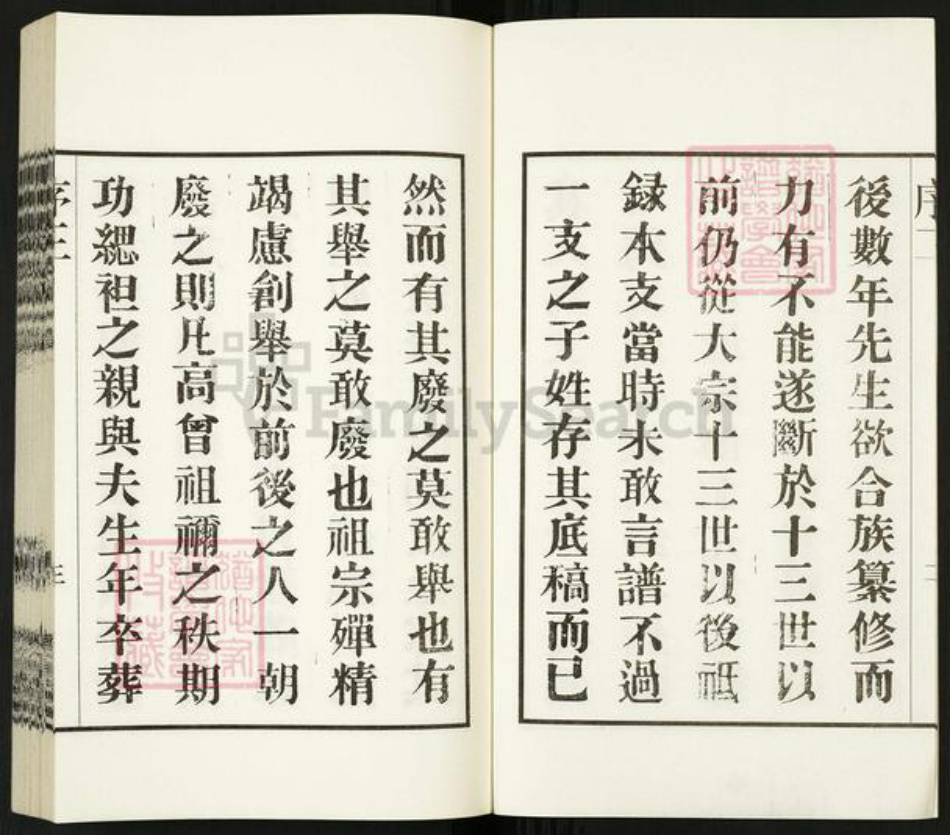 後數年先生欲合族纂修而
力有不能遂斷於十三世以
前仍從大宗十三世以後祗
録本支當時未敢言譜不過
一支之子姓存其底稿而已
然而有其廢之莫敢舉也有
其舉之莫敢廢也祖宗殫精
竭慮創舉於前後之人一朝
廢之則凡高曾祖禰之秩期
功緦袒之親與夫生年卒葬
序三
三
FamilySearch